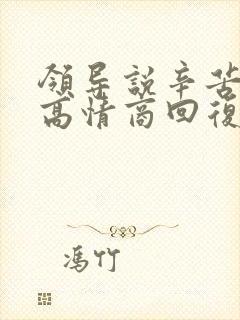 領导説辛苦
高情商回復
馮竹